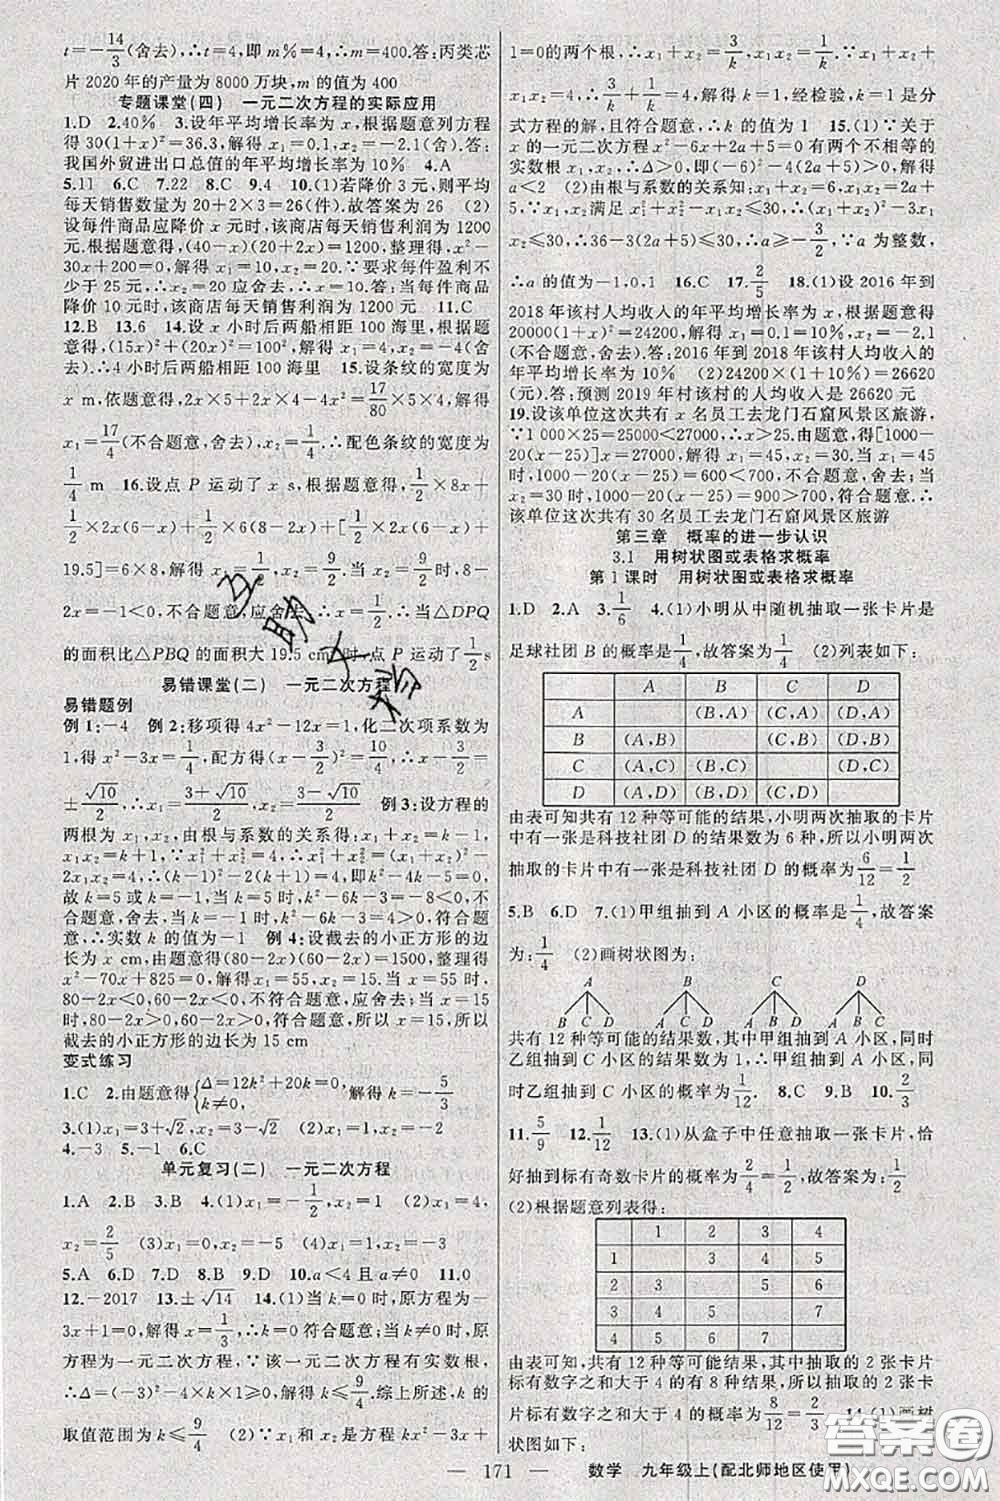 t=-14/3(舍去),∴t=4,即 m%=4,∴m=400.答:丙类芯
片 2020 年的产量为 8000 万块,m 的值为 400
专题课堂(四) 一元二次方程的实际应用
1.D 2.40% 3.设年平均增长率为 x,根据题意列方程
得 30(1+x)²=36.3,解得 x₁=0.1,x₂=-2.1(舍).答:
我国外贸进出口总值的年平均增长率为 10% 4.A
5.11 6.C 7.22 8.C 9.4 10.(1)若降价 3 元,则平均
每天销售数量为 20+2×3=26(件).故答案为 26 (2)
设每件商品应降价 x 元时,该商店每天销售利润为 1200
元.根据题意得,(40-x)(20+2x)=1200,整理得,x²-
30x+200=0,解得 x₁=10,x₂=20.∵要求每件盈利不
少于 25 元,∴x₂=20 应舍去,∴x=10.答:当每件商品
降价 10 元时,该商店每天销售利润为 1200 元 11.C
12.B 13.6 14.设 x 小时后两船相距 100 海里,根据题
意,得(15x)²+(20x)²=100²,解得 x₁=4,x₂=-4(舍
去).∴4 小时后两船相距 100 海里 15.设条纹的宽度为
x m,依题意得,2x×5+2x×4-4x²=17/80×5×4,解得
x₁=17/4(不合题意,舍去),x₂=1/4.∴配色条纹的宽度为
1/4 m 16.设点 P 运动了 x s,根据题意得,1/2×8x+
1/2×2x(6-x)+1/2×6(8-2x)+[1/2×2x(6-x)+
19.5]=6×8,解得 x₁=1/2,x₂=9/2,当 x=9/2时,8-
2x=-1<0,不合题意,应舍去,∴x=1/2,∴当△DPQ
的面积比△PBQ 的面积大 19.5 cm²时,点 P 运动了1/2s
易错课堂(二) 一元二次方程
易错题例
例 1:-4 例 2:移项得 4x²-12x=1,化二次项系数为
1,得 x²-3x=1/4,配方得(x-3/2)²=10/4,∴x-3/2=
±√10/2,∴x₁=(3+√10)/2,x₂=(3-√10)/2 例 3:设方程的
两根为 x₁,x₂,由根与系数的关系得:x₁+x₂=k-1,
x₁x₂=k+1,∵x₁²+x₂²=4,∴x₁²+x₂²=(x₁+x₂)²-
2x₁x₂=4,∴(k-1)²-2(k+1)=4,即 k²-4k-5=0,
故 k=5 或 k=-1,当 k=5 时,k²-6k-3=-8<0,不
合题意,舍去,当 k=-1 时,k²-6k-3=4>0,符合题
意,∴实数 k 的值为-1 例 4:设截去的小正方形的边
长为 x cm,由题意得(80-2x)(60-2x)=1500,整理得
x²-70x+825=0,解得 x₁=55,x₂=15.当 x=55 时,
80-2x<0,60-2x<0,不符合题意,应舍去;当 x=15
时,80-2x>0,60-2x>0,符合题意,所以 x=15,所以
截去的小正方形的边长为 15 cm
变式练习
1.C 2.由题意得{Δ=12k²+20k=0, k≠0, 解得 k=-5/3
3.(1)x₁=3+√2,x₂=3-√2 (2)x₁=1,x₂=3
4.-3 5.-1 6.C
单元复习(二) 一元二次方程
1.A 2.B 3.B 4.(1)x₁=-1/2,x₂=1 (2)x₁=4,
x₂=2/5 (3)x₁=0,x₂=1 (4)x₁=-2,x₂=4
5.A 6.D 7.D 8.B 9.D 10.a<4 且 a≠0 11.0
12.-2017 13.±√14 14.(1)当 k=0 时,原方程为-
3x+1=0,解得 x=1/3,∴k=0 符合题意;当 k≠0 时,原
方程为一元二次方程,∵该一元二次方程有实数根,
∴Δ=(-3)²-4×k×1≥0,解得 k≤9/4.综上所述,k 的
取值范围为 k≤9/4 (2)∵x₁ 和 x₂ 是方程 kx²-3x+
1=0的两个根,∴x₁+x₂=3/k,x₁x₂=1/k.∵x₁+x₂+
x₁x₂=4,∴3/k+1/k=4,解得 k=1,经检验,k=1 是分
式方程的解,且符合题意,∴k 的值为 1 15.(1)∵关于
x 的一元二次方程 x²-6x+2a+5=0 有两个不相等的
实数根 x₁,x₂,∴Δ>0,即(-6)²-4(2a+5)>0,解得
a<2 (2)由根与系数的关系知:x₁+x₂=6,x₁x₂=2a+
5,∵x₁,x₂满足 x₁²+x₂²-x₁x₂≤30,∴(x₁+x₂)²-3x₁
x₂≤30,∴36-3(2a+5)≤30,∴a≥-3/2,∵a 为整数,
∴a 的值为-1,0,1 16.C 17.2/5 18.(1)设 2016 年到
2018 年该村人均收入的年平均增长率为 x,根据题意得
20000(1+x)²=24200,解得 x₁=0.1=10%,x₂=-2.1
(不合题意,舍去).答:2016 年到 2018 年该村人均收入的
年平均增长率为 10% (2)24200×(1+10%)=26620
(元).答:预测 2019 年村该村的人均收入是 26620 元
19.设该单位这次共有 x 名员工去龙门石窟风景区旅游,
∵1 000×25=25000<27000,∴x>25.由题意,得[1000-
20(x-25)]x=27000,解得 x₁=45,x₂=30.当 x=45
时,1000-20(x-25)=600<700,不符合题意,舍去;当
x₂=30 时,1000-20(x-25)=900>700,符合题意.∴
该单位这次共有 30 名员工去龙门石窟风景区旅游
第三章 概率的进一步认识
3.1 用树状图或表格求概率
第 1 课时 用树状图或表格求概率
1.D 2.A 3.1/6 4.(1)小明从中随机抽取一张卡片是
足球社团 B 的概率是1/4,故答案为1/4 (2)列表如下:
A B C D
A (B,A) (C,A) (D,A)
B (A,B) (C,B) (D,B)
C (A,C) (B,C) (D,C)
D (A,D) (B,D) (C,D)
由表可知共有 12 种等可能的结果,小明两次抽取的卡片
中有一张是科技社团 D 的结果数为 6 种,所以小明两次
抽取的卡片中有一张是科技社团 D 的概率为6/12=1/2
5.B 6.D 7.(1)甲组抽到 A 小区的概率是1/4,故答案
为:1/4 (2)画树状图为:
A B C D
B C D A C D A B D A B C
共有 12 种等可能的结果数,其中甲组抽到 A 小区,同时
乙组抽到 C 小区的结果数为 1,∴甲组抽到 A 小区,同
时乙组抽到 C 小区的概率为1/12 8.D 9.B 10.2/3
11.5/9 12.1/12 13.(1)从盒子中任意抽取一张卡片,恰
好抽到标有奇数卡片的概率为2/4=1/2,故答案为:1/2
(2)根据题意列表得:
1 2 3 4
1 3 4 5
2 3 5 6
3 4 5 7
4 5 6 7
由表可知,共有 12 种等可能结果,其中抽取的 2 张卡片
标有数字之和大于 4 的有 8 种结果,所以抽取的 2 张卡
片标有数字之和大于 4 的概率为8/12=2/3 14.(1)画树
状图如下:
— 171 — 数学 九年级上(配北师地区使用)
答案圈
MXQE.COM